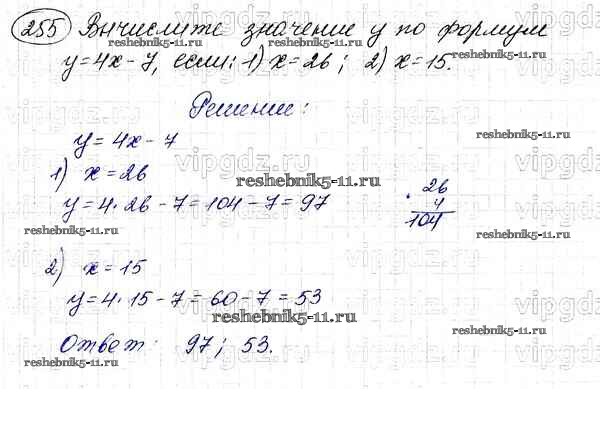 255 Вычислите значение y по формул
y=4x-7, если: 1) x=26; 2) x=15.
Решение:
y=4x-7
1) x=26
y=4·26-7=104-7=97
· 26
4
104
2) x=15
y=4·15-7=60-7=53
Ответ: 97; 53.
reshebnik5-11.ru
reshebnik5-11.ru
reshebnik5-11.ru
reshebnik5-11.ru
reshebnik5-11.ru
reshebnik5-11.ru
reshebnik5-11.ru
reshebnik5-11.ru
reshebnik5-11.ru
reshebnik5-11.ru
vipgdz.ru
vipgdz.ru
vipgdz.ru
vipgdz.ru